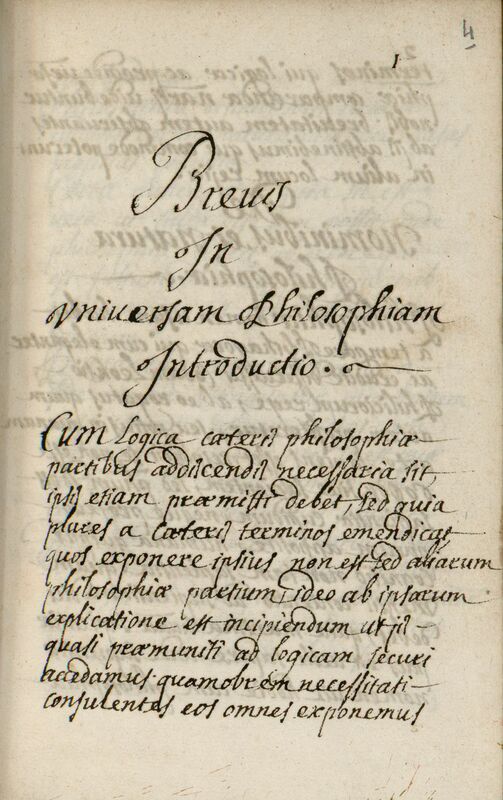 4
1
Brevis
In
Vniversam Philosophiam
Introductio.
Cum Logica cæteris philosophiæ
partibus addiscendis necessaria sit,
ipsis etiam præmitti debet, sed quia
plures a cæteris terminos emendicat
quos exponere ipsius non est sed aliarum
philosophiæ partium, ideo ab ipsarum
explicatione est incipiendum ut iis
quasi præmuniti ad logicam securi
accedamus quamobrém necessitati
consulentes eos omnes exponemus